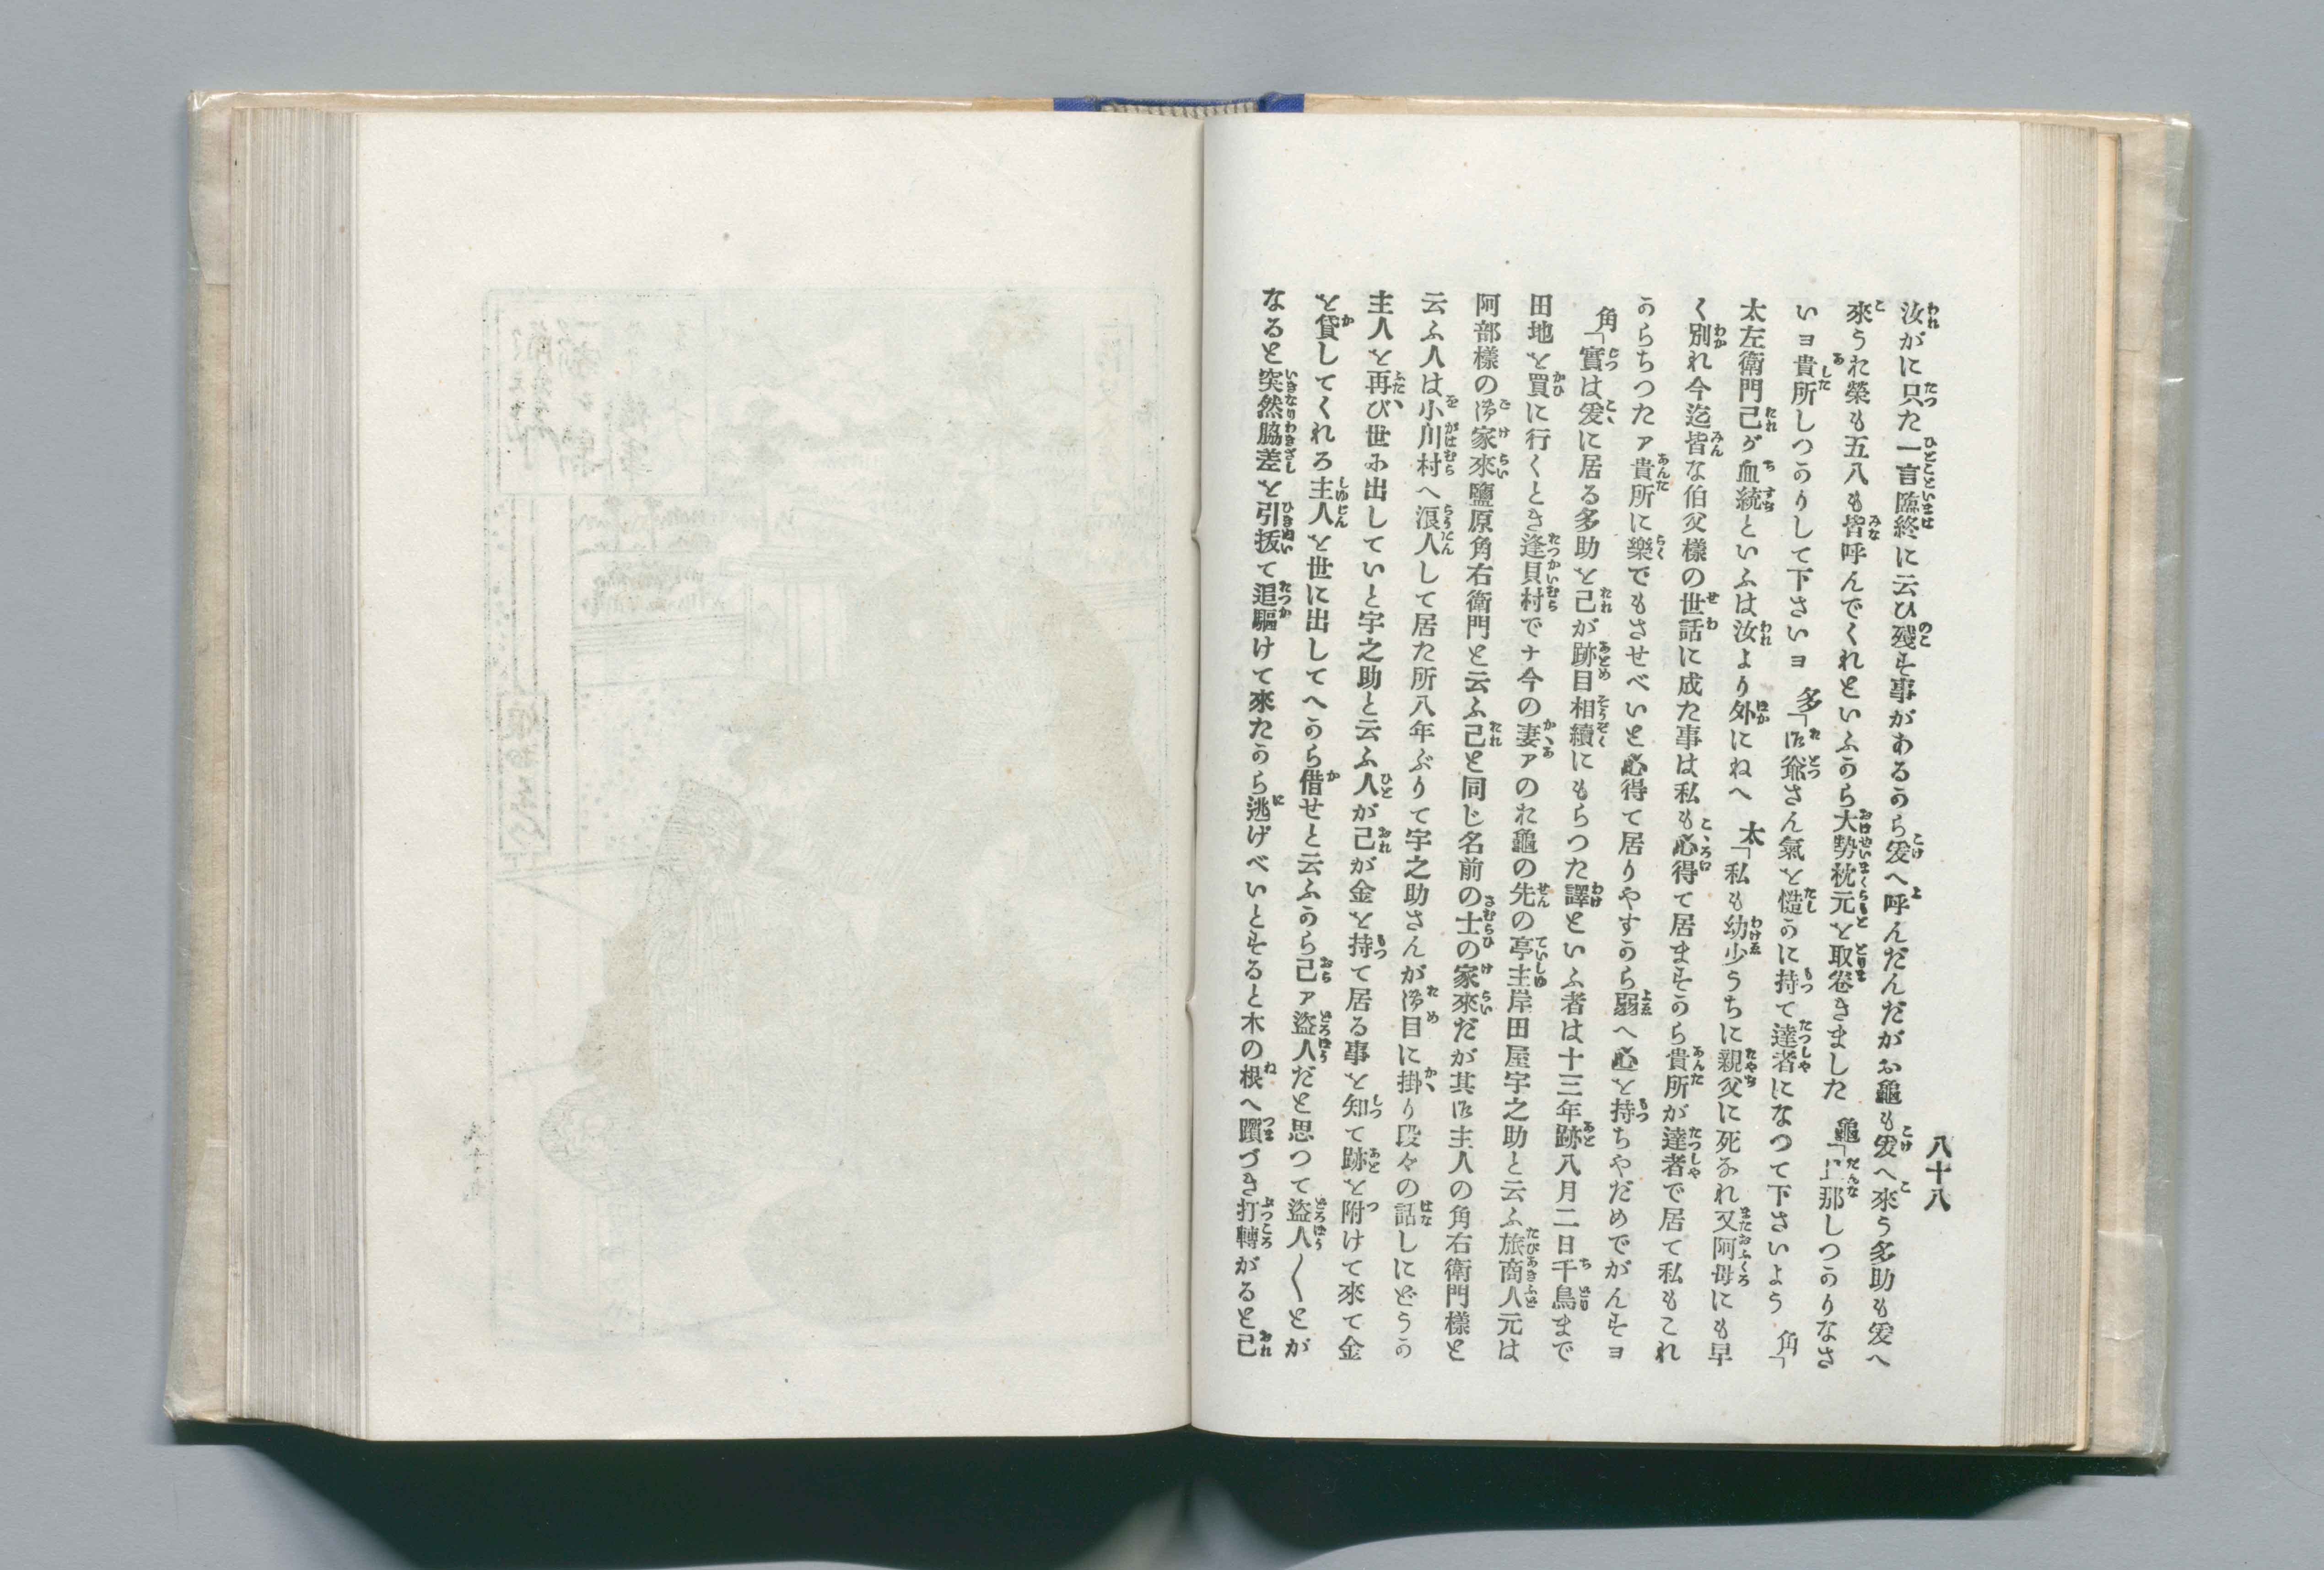 八十八
汝がに只た一言臨終に云ひ残す事があるから爰へ呼んだんだがお龜も爰へ來う多助も爰へ
來うお榮も五八も皆呼んでくれといふから大勢枕元を取卷きました　龜「旦那しつかりなさ
いヨ貴所しつかりして下さいヨ　多「御爺さん氣を慥かに持て達者になつて下さいよう　角「
太左衛門己が血統といふは汝より外にねへ　太「私も幼少うちに親父に死なれ又阿母にも早
く別れ今迄皆な伯父樣の世話に成た事は私も心得て居ますから貴所が達者で居て私もこれ
からちつたァ貴所に樂でもさせべいと心得て居りやすから弱へ心を持ちやだめでがんすヨ
角「實は爰に居る多助を己が跡目相續にもらつた譯といふ者は十三年跡八月二日千鳥まで
田地を買に行くとき逢貝村でナ今の妻ァのお龜の先の亭主岸田屋宇之助と云ふ旅商人元は
阿部樣の御家來鹽原角右衛門と云ふ己と同じ名前の士の家來だが其御主人の角右衛門樣と
云ふ人は小川村へ浪人して居た所八年ぶりで宇之助さんが御目に掛り段々の話しにどうか
主人を再び世に出していと宇之助と云ふ人が己が金を持て居る事を知て跡を附けて來て金
を貸してくれろ主人を世に出してへから借せと云ふから己ァ盜人だと思つて盜人〱とが
なると突然脇差を引拔て追驅けて來たから逃げべいとすると木の根へ躓づき打轉がると己